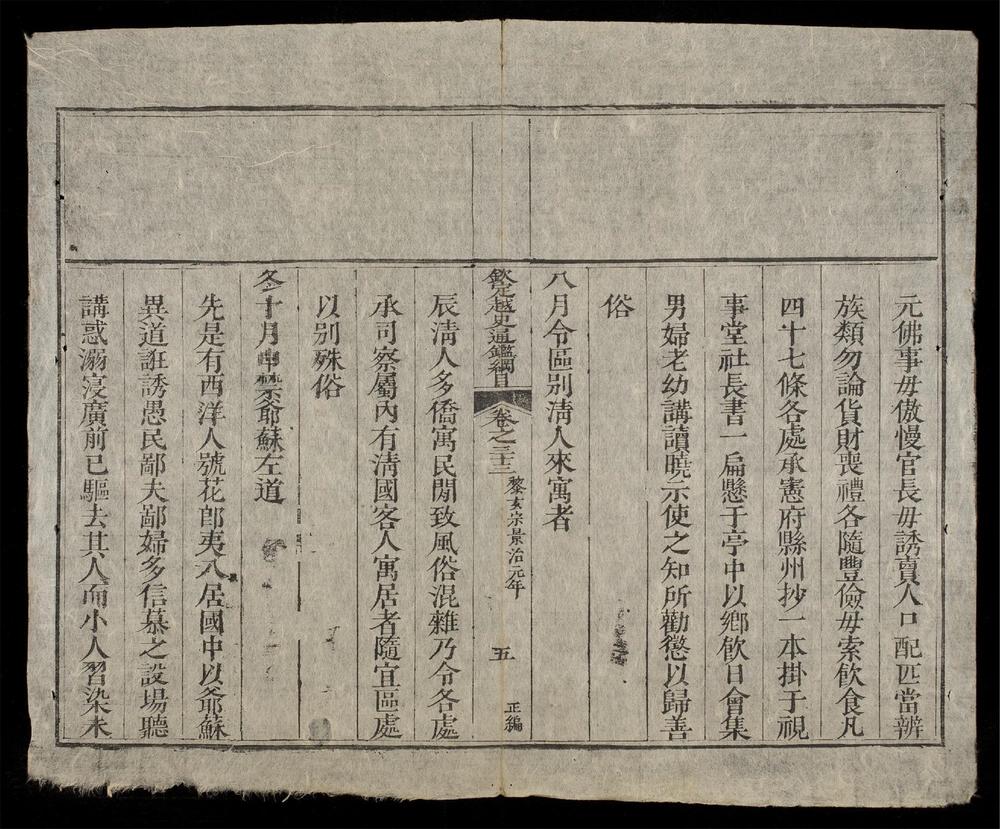 元佛事毋傲慢官長毋誘賣人口配匹當辨
族類勿論貨財喪禮各隨豐儉毋索飲食凡
四十七條各處承憲府縣州抄一本掛于視
事堂社長書一扁懸于亭中以鄉飲日會集
男婦老幼講讀曉示使之知所勸懲以歸善
俗
八月令區別淸人來寓者
欽定越史通鑑綱目
卷之三十三
黎玄宗景治元年
五
正編
辰淸人多僑寓民閒致風俗混雜乃令各處
承司察屬內有淸國客人寓居者隨宜區處
以別殊俗
冬十月申禁爺蘇左道
先是有西洋人號花郎夷入居國中以爺蘇
異道誑誘愚民鄙夫鄙婦多信慕之設場聽
講惑溺寖廣前已驅去其人而小人習染未